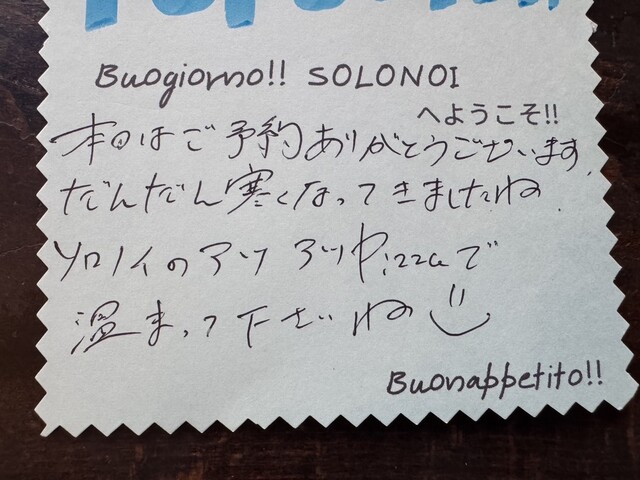 Buogiorno!! SOLONOI
へようこそ!!
本日はご予約ありがとうございます。
だんだん寒くなってきましたね
ソロノイのアツアツPizzaで
温まって下さいね
Buonappetito!!